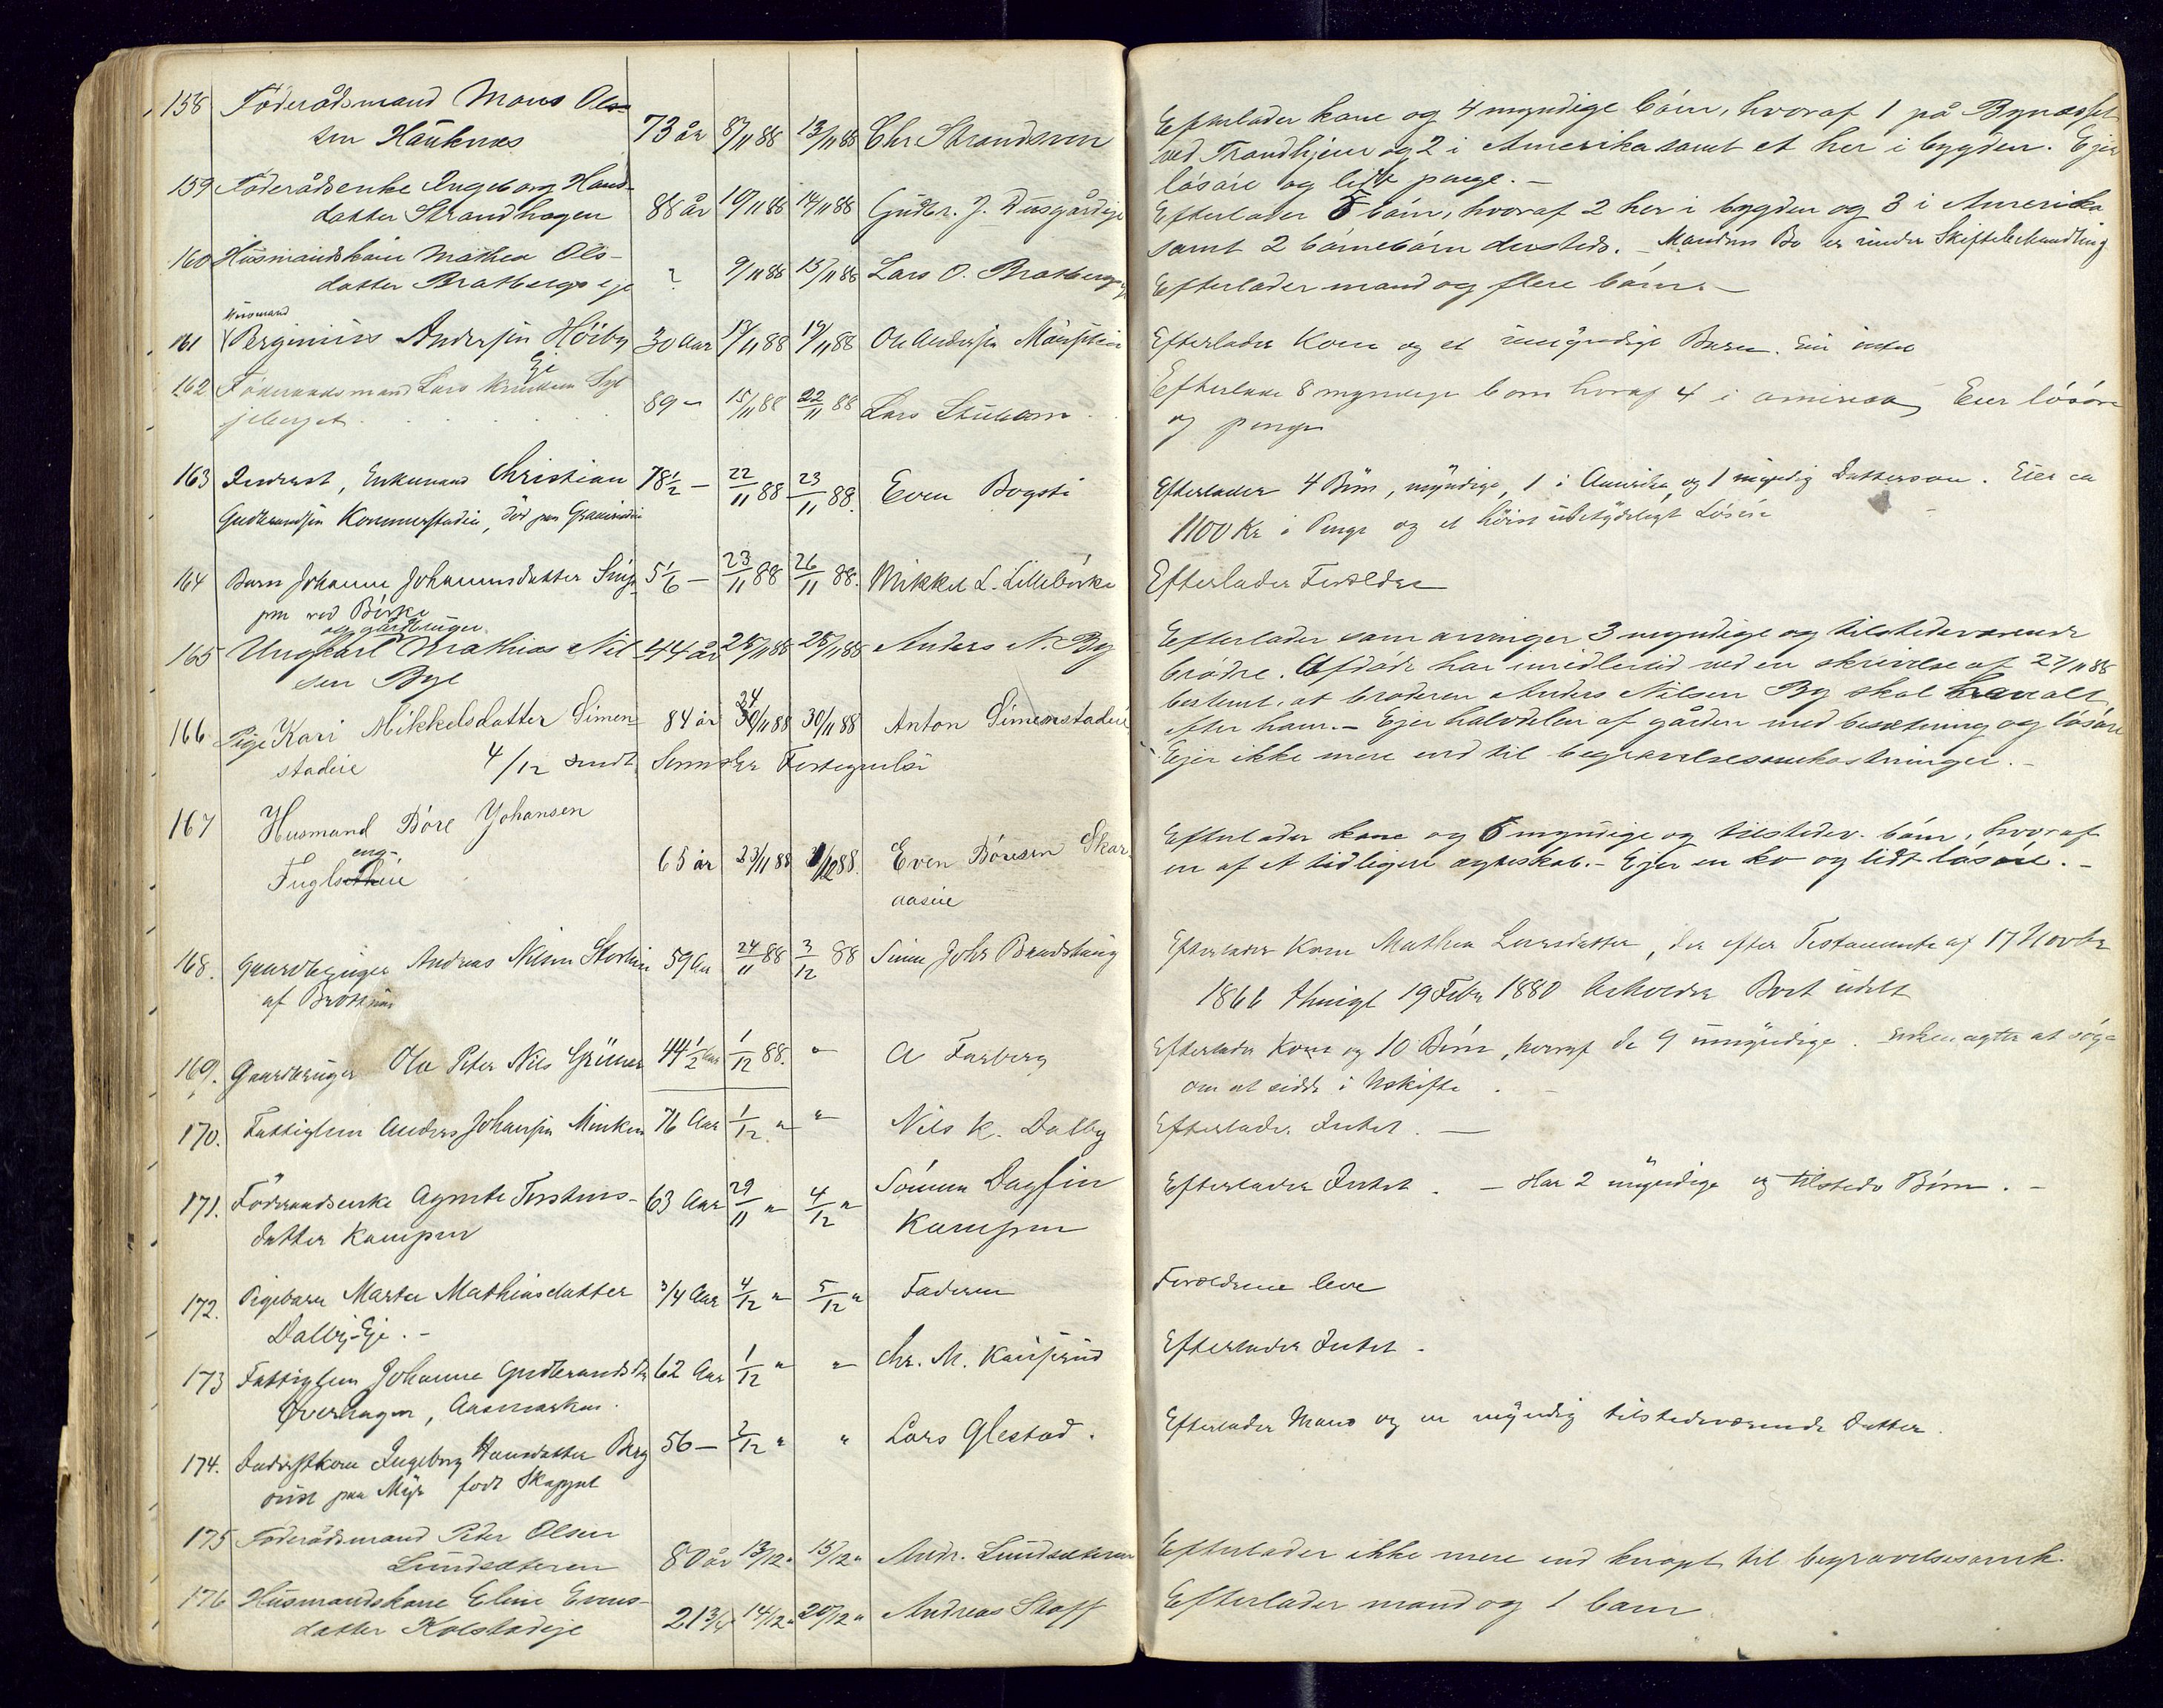 158 Föderådsmand Mons Ol-
sen Hauknes 73 år 8/11 88 13/11 88 Chr Strandsveen
Efterlader kone og 4 myndige börn, hvoraf 1 på Bynæsset
ved Trondhjem og 2 i Amerika samt et her i bygden. Ejer
lösöre og lidt penge. —
159 Föderådsenke Ingeborg Hans-
datter Strandhagen 88 år 10/11 88 14/11 88 Gudbr. J.
Efterlader 5 börn, hvoraf 2 her i bygden og 3 i Amerika
samt 2 börnebörn dersteds. — Mandens Bo er under Skiftebehandling
160 Husmandskone Mathea Ols-
datter Bratbergseje ? 9/11 88 15/11 88 Lars O. Bratbergseje
Efterlader mand og flere börn. —
Husmand
161 Perginius Andersen Höiby
Eje
30 Aar 13/11 88 19/11 88 Ole Andersen
Efterlader Kone og et umyndigt Barn. Eier intet
162 Föderaadsmand Lars Knudsen Syl
jeberget 89 — 15/11 88 22/11 88 Lars Stuberg
Efterlader 8 myndige börn hvoraf 4 i amerika, Eier lösöre
og penge
163 Inderst, Enkemand Christian 78½ — 22/11 88 23/11 88. Even Bogsti
Gudbrandsen Kommerstadeie, död paa
Efterlader 4 Börn, myndige, 1 i Amerika og 1 myndig Dattersön. Eier ca
1100 Kr i Penge og et höist ubetydeligt Lösöre
164 Barn Johanne Johannesdatter 5 1/6 — 23/11 88 26/11 88. Mikkel L. Lillebörke
ved Börke
Efterlader Forældre
og gårdbruger
165 Ungkarl Mathias Nil 44 år 25/11 88 28/11 88 Anders N. By
sen Bye
Efterlader som arvinger 3 myndige og tilstedeværende
brödre. Afdöde har imidlertid ved en skrivelse af 27/11 88
bestemt, at broderen Anders Nilsen By skal have alt
efter ham. — Ejer halvdelen af gården med besætning og lösöre
166 Pige Kari Mikkelsdatter Simen 84 år 24/11 88 30/11 88 Anton Simenstadeie
stadeie 4/12 sendt Fortegnelse
Ejer ikke mere end til begravelsesomkostninger. —
167 Husmand Böre Johansen
eng-
Fuglsetheie 65 år 23/11 88 1/12 88. Even Böresen Skar
aaseie
Efterlader kone og 6 myndige og tilstedev. börn, hvoraf
en af et tidligere ægteskab. — Ejer en ko og lidt lösöre. —
168. Gaardbruger Andreas Nilsen 59 Aar 24/11 88 3/12 88 Simen Johs Brandshaug
af
Efterlader Kone Mathea Larsdatter, der efter Testamente af 17 Novbr
1866 thingl 19 Febr 1880 beholder Boet udelt
169. Gaardbruger Ole Peter Nils Grüner 44½ Aar 1/12 88. " A Farberg
Efterlader Kone og 10 Börn, hvoraf de 9 umyndige. Enken agter at söge
om at sidde i Uskifte. —
170. Fattiglem Anders Johansen 76 Aar 1/12 " " Nils K. Dalby
Efterlader Intet. —
171. Föderaadsenke Agnete Torstens- 63 Aar 29/11 " 4/12 " Sönnen Dagfin
datter Kampen Kampen
Efterlader Intet. — Har 2 myndige og tilstedev Börn. —
172. Pigebarn Marte Mathiasdatter 3/4 Aar 4/12 " 5/12 " Faderen
Dalby-Eje. —
Forældrene leve
173 Fattiglem Johanne Gudbrandsdtr 62 Aar 1/12 " " Chr. M.
Överhagen, Aasmarken.
Efterlader Intet.
174. Inderstkone Ingeborg Hansdatter Berg 56 — 2/12 " " Lars Glestad.
sidst paa Myr född Skappel
Efterlader Mand og en myndig tilstedeværende Datter.
175 Föderådsmand Peder Olsen
Lundsæteren 80 år 13/12 " 15/12 " Andr. Lundsæteren
Efterlader ikke mere end knapt til begravelsesomk.
176 Husmandskone Eline Evens-
datter Kolstadeje 21 3/4 14/12 " 20/12 " Andreas Staff
Efterlader mand og 1 barn